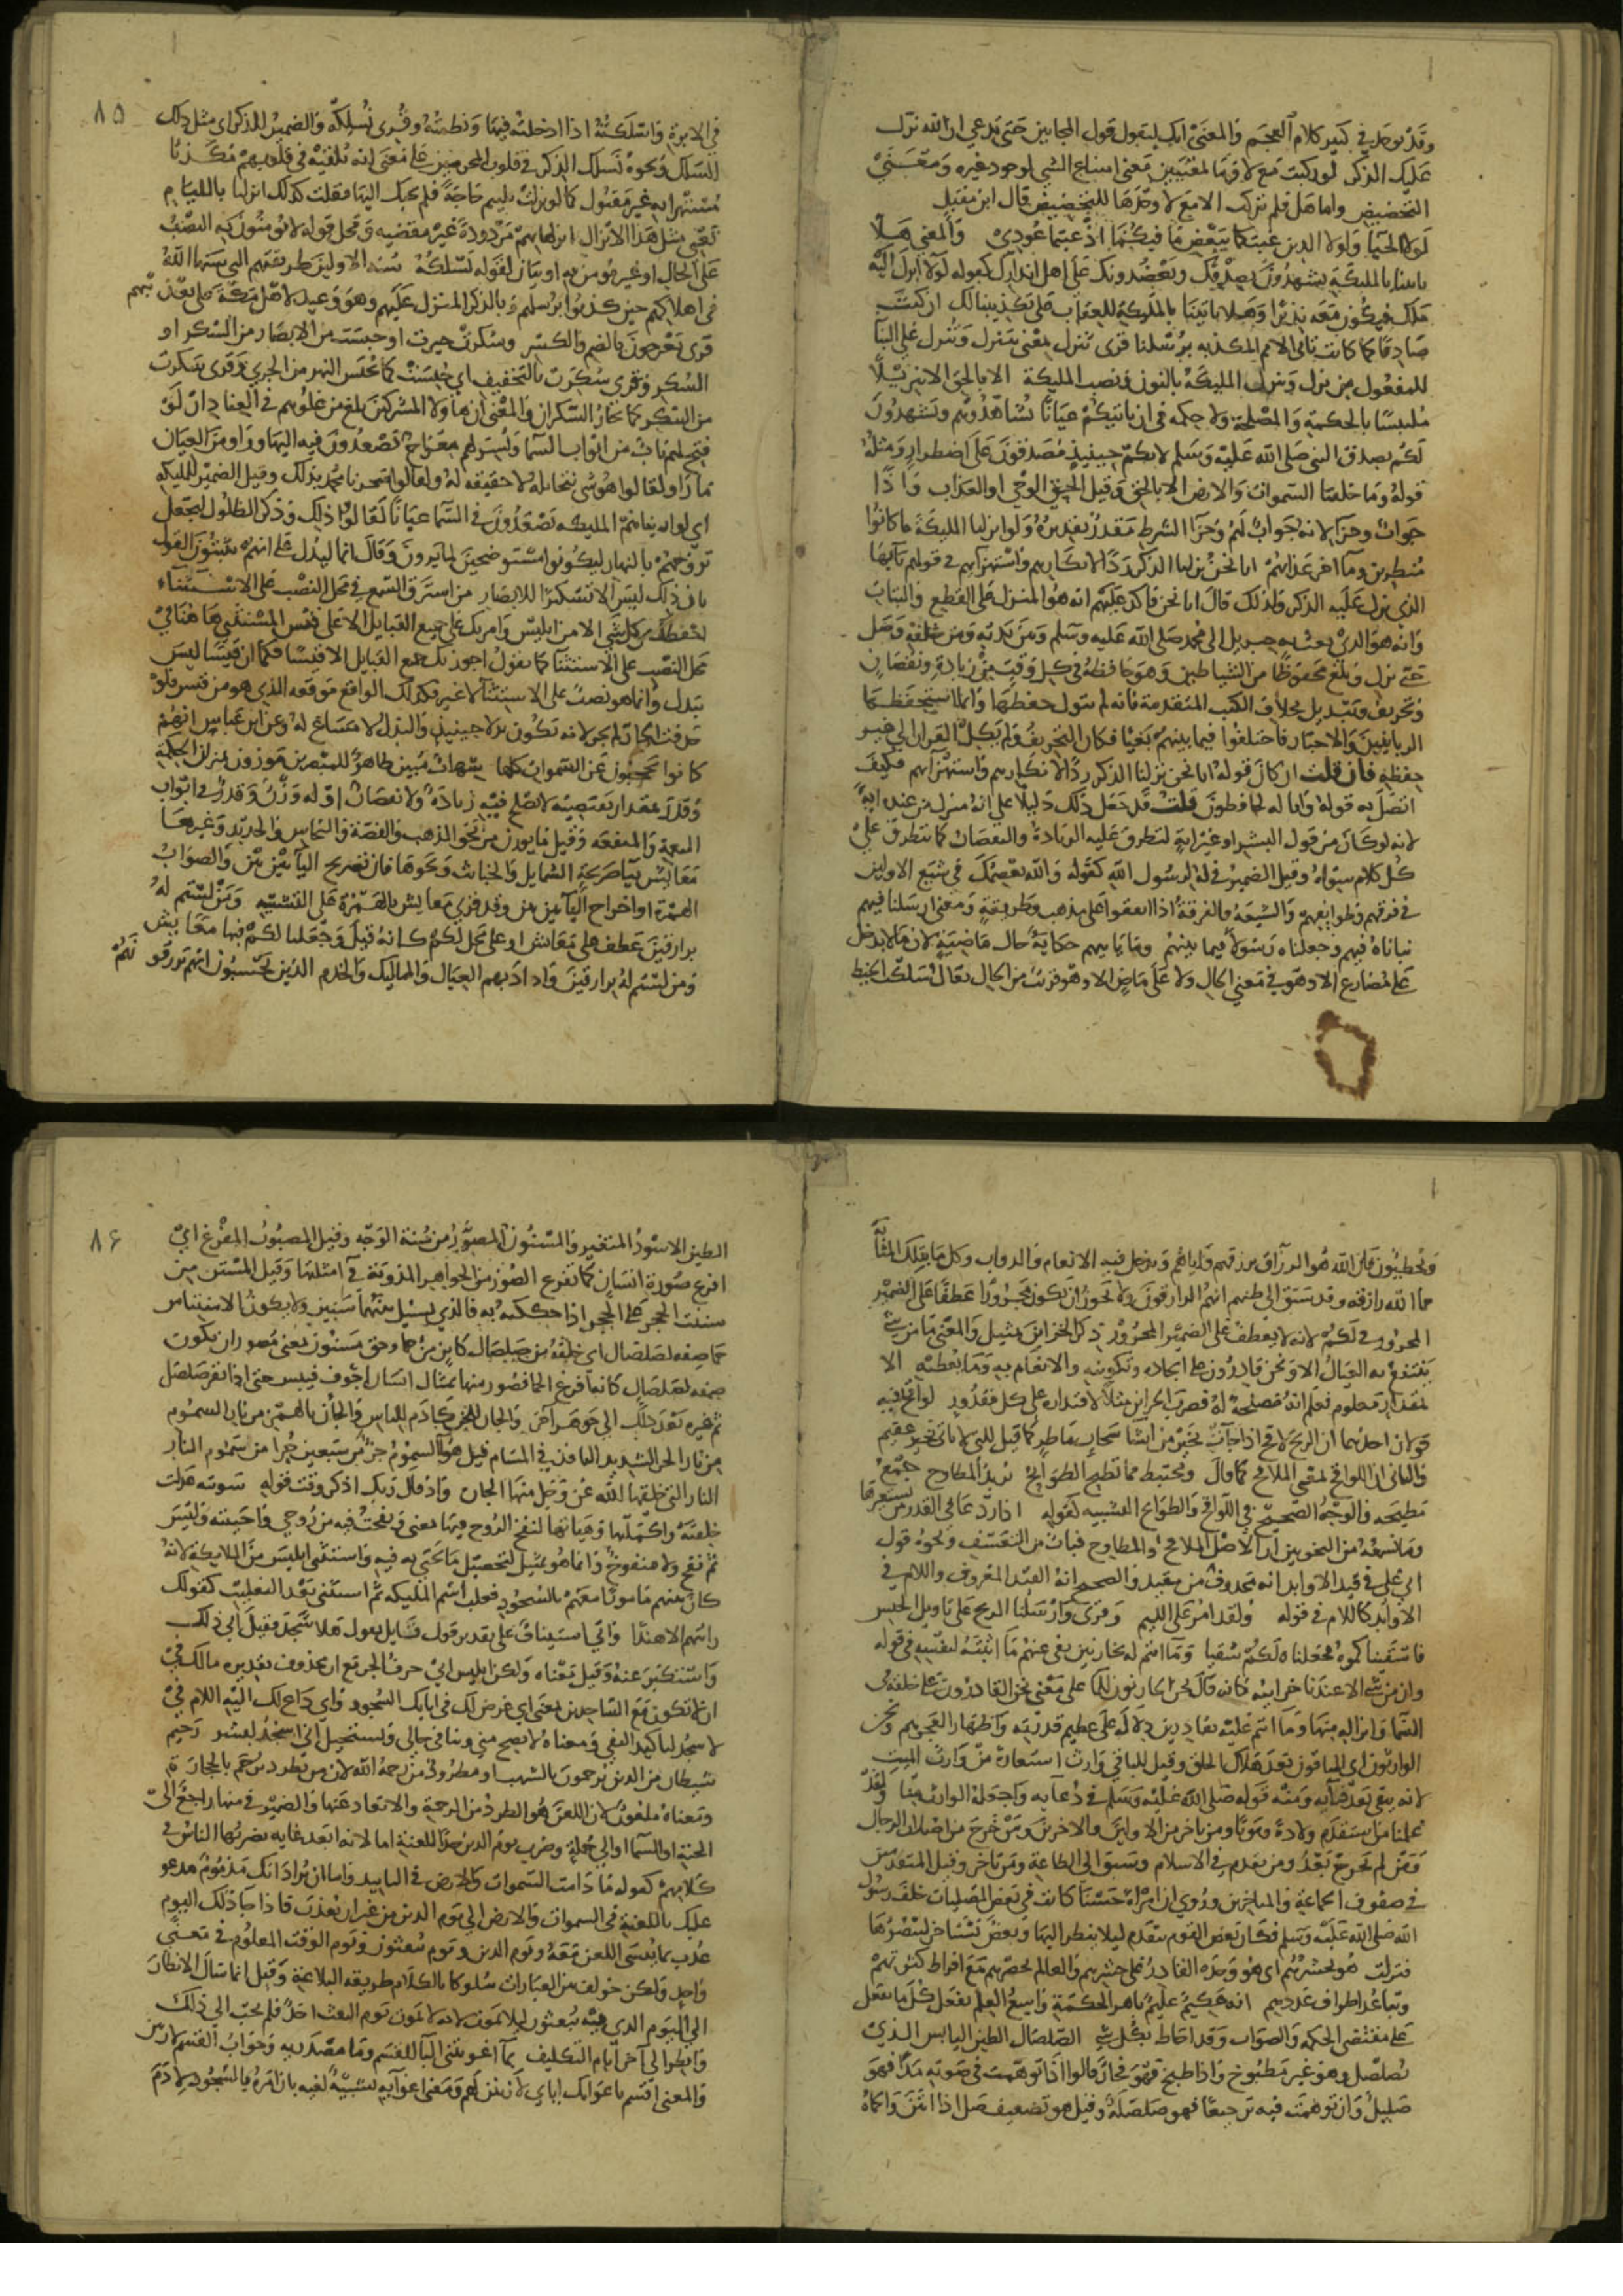 وقد يوجد في كثير كلام العجم والمعنى انك لتقول قول المجانين حتى تدعي ان الله نزل
عليك الذكر لو ركبت مع لا وما لمعنيين معنى امتناع الشي لوجود غيره ومعنى
التحضيض واما هل فلم تركب الا مع لا وحدها للتحضيض قال ابن مقبل
لولا الحيا ولولا الدين عبتكما ببعض ما فيكما اذ عبتما عوري والمعنى هلا
تاتينا بالمليكة يشهدون بصدقك ويعضدونك على اهل انذارك كقوله لولا انزل اليه
ملك فيكون معه نذيرا وهلا تاتينا بالمليكة للعقاب على تكذيبنا لك ان كنت
صادقا كما كانت تاتي الامم المكذبه برسلنا قرى تنزل بمعنى تتنزل وتنزل على البنا
للمفعول من نزل وننزل المليكة بالنون ونصب المليكة الا بالحق الا تنزيلا
ملتبسا بالحكمة والمصلحة ولا حكمه في ان ياتيكم عيانا تشاهدونهم ويشهدون
لكم بصدق النبي صلى الله عليه وسلم لانكم حينيذ مصدقون على اضطرار ومثله
قوله وما خلقنا السموات والارض الا بالحق وقيل الحق الوحي او العذاب واذا
جواب وجزا لانه جواب لهم وجزا الشرط مقدر تقديره ولو نزلنا المليكة ما كانوا
منظرين وما اخر عذابهم انا نحن نزلنا الذكر رد لانكارهم واستهزايهم في قولهم يا ايها
الذي نزل عليه الذكر ولذلك قال انا نحن فاكد عليهم انه هو المنزل على القطع والبتات
وانه هو الذي بعث به جبريل الى محمد صلى الله عليه وسلم ومن بين يديه ومن خلفه رصد
حتى نزل وبلغ محفوظا من الشياطين وهو حافظه في كل وقت من زيادة ونقصان
وتحريف وتبديل بخلاف الكتب المتقدمة فانه لم يتول حفظها وانما استحفظها
الربانيين والاحبار فاختلفوا فيما بينهم بغيا فكان التحريف ولم يكل القران الى غير
حفظه فان قلت ان كان قوله انا نحن نزلنا الذكر ردا لانكارهم واستهزايهم فكيف
اتصل به قوله وانا له لحافظون قلت قد جعل ذلك دليلا على انه منزل من عنده اية
لانه لو كان من قول البشر او غير اية لتطرق عليه الزيادة والنقصان كما تتطرق على
كل كلام سواه وقيل الضمير في له لرسول الله كقوله والله يعصمك في شيع الاولين
في فرقهم وطوايفهم والشيعة الفرقة اذا اتفقوا على مذهب وطريقة ومعنى ارسلنا فيهم
نباناه فيهم وجعلناه رسولا فيما بينهم وما ياتيهم حكاية حال ماضية لان ما لا يدخل
على مضارع الا وهو في معنى الحال ولا على ماض الا وهو قريب من الحال يقال سلكت الخيط
٨٥
في الابرة واسلكته اذا ادخلته فيها ونظمته وقرى نسلكه والضمير للذكر اي مثل ذلك
السلك ونحوه نسلك الذكر في قلوب المجرمين على معنى انه نلقيه في قلوبهم مكذبا
مستهزا به غير مقبول كما لو نزلت بليم حاجة فلم يجبك اليها فقلت كذلك انزلها باللئام
تعني مثل هذا الانزال انزلها بهم مردودة غير مقضيه ومحل قوله لا يومنون به النصب
على الحال او غير مومن به او بيان لقوله نسلكه سنة الاولين طريقتهم التي سنها الله
في اهلاكهم حين كذبوا برسلهم وبالذكر المنزل عليهم وهو وعيد لاهل مكة على تكذيبهم
قرى يعرجون بالضم والكسر وسكرت حيرت او حبست من الابصار من السكر او
السكر وقرى سكرت بالتخفيف اي حبست كما يحبس النهر من الجري وقرى سكرت
من السكر كما يحار السكران والمعنى ان هاولا المشركين بلغ من غلوهم في العناد ان لو
فتح لهم باب من ابواب السما ويسر لهم معراج يصعدون فيه اليها وراوا من العيان
ما راوا لقالوا هو شي نتخايله لا حقيقه له ولقالوا قد سحرنا محمد بذلك وقيل الضمير للمليكة
اي لو اريناهم المليكه يصعدون في السما عيانا لقالوا ذلك وذكر الظلول ليجعل
عروجهم بالنهار ليكونوا مستوضحين لما يرون وقال انما ليدل على انهم يبتون القول
بان ذلك ليس الا تسكيرا للابصار من استرق السمع في محل النصب على الاستثناء
وقدر بمقدار تقتضيه لا تصلح فيه زيادة ولا نقصان او له وزن وقدر في ابواب
النعمة والمنفعه وقيل ما يوزن من نحو الذهب والفضة والنحاس والحديد وغيرها
معايش بيا صريحة الشمايل والخبائث ونحوها فان تصريح اليا منها بين والصواب
الهمزة او اخراج اليا بين بين وقد قرى معائش بالهمزة على التشبيه ومن لستم له
برازقين عطف على معايش او على محل لكم كانه قيل وجعلنا لكم فيها معايش
ومن لستم له برازقين وارادبهم العيال والمماليك والخدم الذين يحسبون انهم يرزقونهم
ويخطيون فان الله هو الرزاق يرزقهم واياهم ويدخل فيه الانعام والدواب وكل ما بتلك المثابة
مما الله رازقه وقد سبق الى ظنهم انهم الرازقون ولا يجوز ان يكون مجرورا عطفا على الضمير
المجرور في لكم لانه لا يعطف على الضمير المجرور ذكر الخزاين تمثيل والمعنى ما من شي
ينتفع به العباد الا ونحن قادرون على ايجاده وتكوينه والانعام به وما نعطيه الا
بمقدار معلوم نعلم انه مصلحة له فضرب الخزاين مثلا لاقتداره على كل مقدور لواقح فيه
قولان احدهما ان الريح لاقح اذا جات بخير من انشا سحاب ماطر كما قيل للتي لا تاتي بخير عقيم
والثاني ان اللواقح بمعنى الملاقح كما قال ومختبط مما تطيح الطوائح يريد المطاوح جمع
فاسقيناكموه فجعلناه لكم سقيا وما انتم له بخازنين نفى عنهم ما اثبته لنفسه في قوله
وان من شي الا عندنا خزاينه كانه قال نحن الخازنون للما على معنى نحن القادرون على خلقه في
السما وانزاله منها وما انتم عليه بقادرين دلالة على عظيم قدرته واظهارا لعجزهم ونحن
الوارثون اي الباقون بعد هلاك الخلق وقيل للباقي وارث استعارة من وارث الميت
لانه يبقى بعد فنايه ومنه قوله صلى الله عليه وسلم في دعايه واجعله الوارث منا ولقد
علمنا من استقدم ولادة وموتا ومن تاخر من الاولين والاخرين ومن خرج من اصلاب الرجال
ومن لم يخرج بعد ومن تقدم في الاسلام وسبق الى الطاعة ومن تاخر وقيل المستقدمين
في صفوف الجماعة والمتاخرين وروي ان امراة حسنا كانت في بعض المصليات خلف رسول
الله صلى الله عليه وسلم فكان بعض القوم يتقدم ليلا ينظر اليها وبعض يستاخر ليبصرها
فنزلت هو يحشرهم اي هو وحده القادر على حشرهم والعالم بحصرهم مع افراط كثرتهم
وتباعد اطراف عددهم انه حكيم عليم باهر الحكمة واسع العلم يفعل كل ما يفعل
على مقتضى الحكمة والصواب وقد احاط بكل شي الصلصال الطين اليابس الذي
يصلصل وهو غير مطبوخ واذا طبخ فهو فخار قالوا اذا توهمت في صوته مدا فهو
صليل وان توهمت فيه ترجيعا فهو صلصلة وقيل هو تضعيف صل اذا انتن والحماه
٨٦
الطين الاسود المتغير والمسنون المصور من سنة الوجه وقيل المصبوب المفرغ اي
افرغ صورة انسان كما تفرغ الصور من الجواهر المذوبة في امثلتها وقيل المنتن من
سننت الحجر على الحجر اذا حككته به فالذي يسيل بينهما سنين ولا يكون الا منتنا من
حما صفه لصلصال اي خلقه من صلصال كاين من حما وحق مسنون بمعنى مصور ان يكون
صفه لصلصال كانه افرغ الحما فصور منها تمثال انسان اجوف فيبس حتى اذا نقر صلصل
ثم غيره بعد ذلك الى جوهر اخر والجان للجن كادم للناس والجان بالهمز من نار السموم
من نار الحر الشديد النافذ في المسام قيل هذا السموم جز من سبعين جزا من سموم النار
النار التي خلق الله عز وجل منها الجان واذ قال ربك اذكر وقت قوله سويته عدلت
خلقته واكملتها وهياتها لنفخ الروح فيها معنى ونفخت فيه من روحي واحييته وليس
ثم نفخ ولا منفوخ وانما هو تمثيل لتحصيل ما يحيى به فيه واستثنى ابليس من الملايكة لانه
كان بينهم مامورا معهم بالسجود فغلب اسم المليكه ثم استثنى بعد التغليب كقولك
رايتهم الا هندا وابى استيناف على تقدير قول قايل يقول هلا سجد فقيل ابى ذلك
واستكبر عنه وقيل معناه ولكن ابليس ابى حرف الجر مع ان محذوف تقديره مالك في
ان لا تكون مع الساجدين بمعنى اي غرض لك في ابايك السجود واي داع لك اليه اللام في
لاسجد لتاكيد النفي ومعناه لا يصح مني وينافي حالي ويستحيل ان اسجد لبشر رجيم
شيطان من الذين يرجمون بالشهب او مطرود من رحمة الله لان من يطرد يرجم بالحجارة
ومعناه ملعون لان اللعن هو الطرد من الرحمة والابعاد عنها والضمير في منها راجع الى
الجنة او السما او الى جملة وضرب يوم الدين حدا للعنة اما لانه ابعد غايه يضربها الناس في
كلامهم كقوله ما دامت السموات والارض في التابيد واما ان يراد انك مذموم مدعو
عليك باللعنة في السموات والارض الى يوم الدين من غير ان تعذب فاذا جا ذلك اليوم
عذب بما ينسى اللعن معه ويوم الدين ويوم يبعثون ويوم الوقت المعلوم في معنى
واحد ولكن خولف بين العبارات سلوكا بالكلام طريقه البلاغة وقيل انما سال الانظار
الى اليوم الذي فيه يبعثون ليلا يموت لانه لا يموت يوم البعث احد فلم يجب الى ذلك
وانظر الى اخر ايام التكليف بما اغويتني البا للقسم وما مصدريه وجواب القسم لازينن
والمعنى اقسم باغوايك اياي لازينن لهم ومعنى اغوايه تسبيبه لغيه بان امره بالسجود لادم